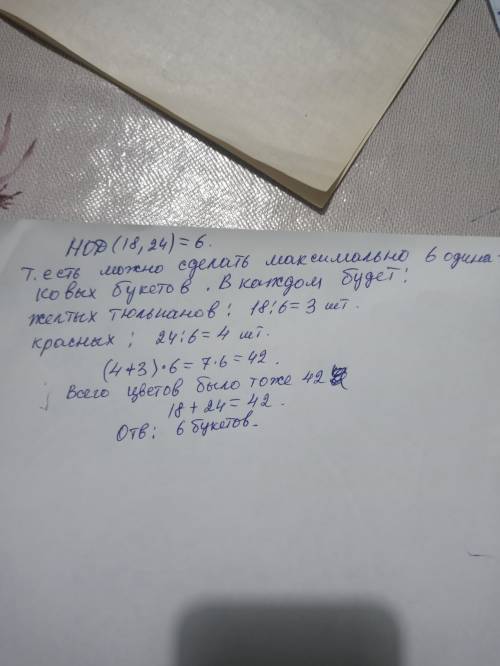 НОД(18,24)=6.
Т.есть можно сделать максимально 6 одина-
ковых букетов. В каждом будет:
желтых тюльпанов: 18:6=3 шт.
красных: 24:6=4 шт.
(4+3)·6=7·6=42.
Всего цветов было тоже 42
18+24=42.
Отв: 6 букетов.